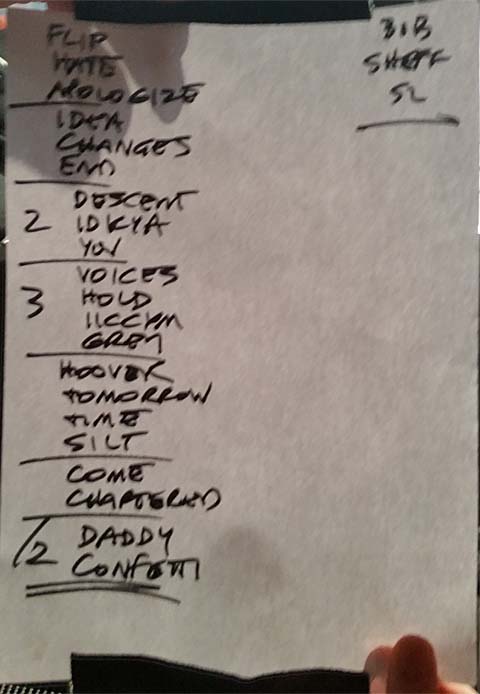 FLIP
HATE
APOLOGIZE
IDEA
CHANGES
END
DESCENT
2 IDKYA
YOU
VOICES
3 HOLD
IICCYM
GREY
HOOVER
TOMORROW
TIME
SILT
COME
CHARTERED
DADDY
/2 CONFETTI
BIB
SHEFF
SL